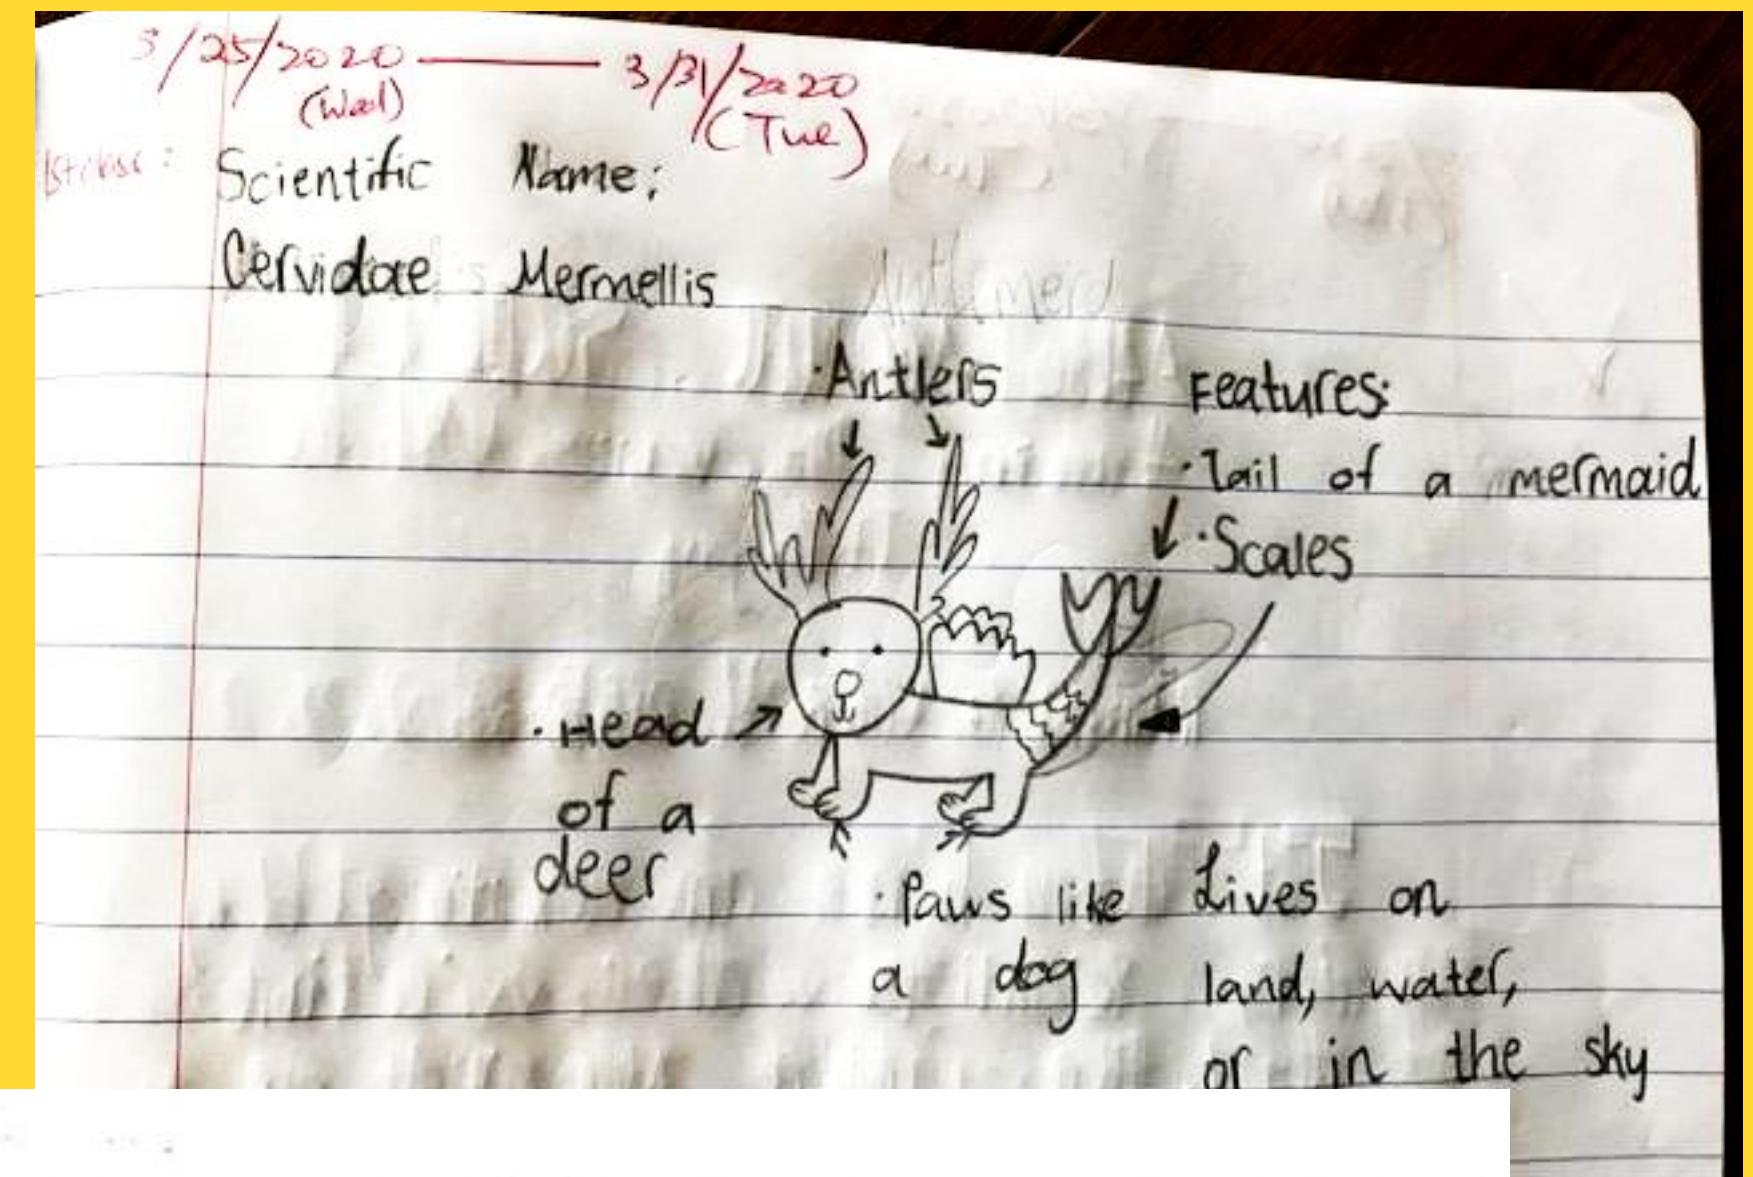 3/25/2020 — 3/31/2020
(Wed) (Tue)
Scientific Name:
Cervidae Mermellis
· Antlers
Features:
· Tail of a mermaid
· Scales
· Head
of a
deer
· Paws like
a dog
Lives on
land, water,
or in the sky